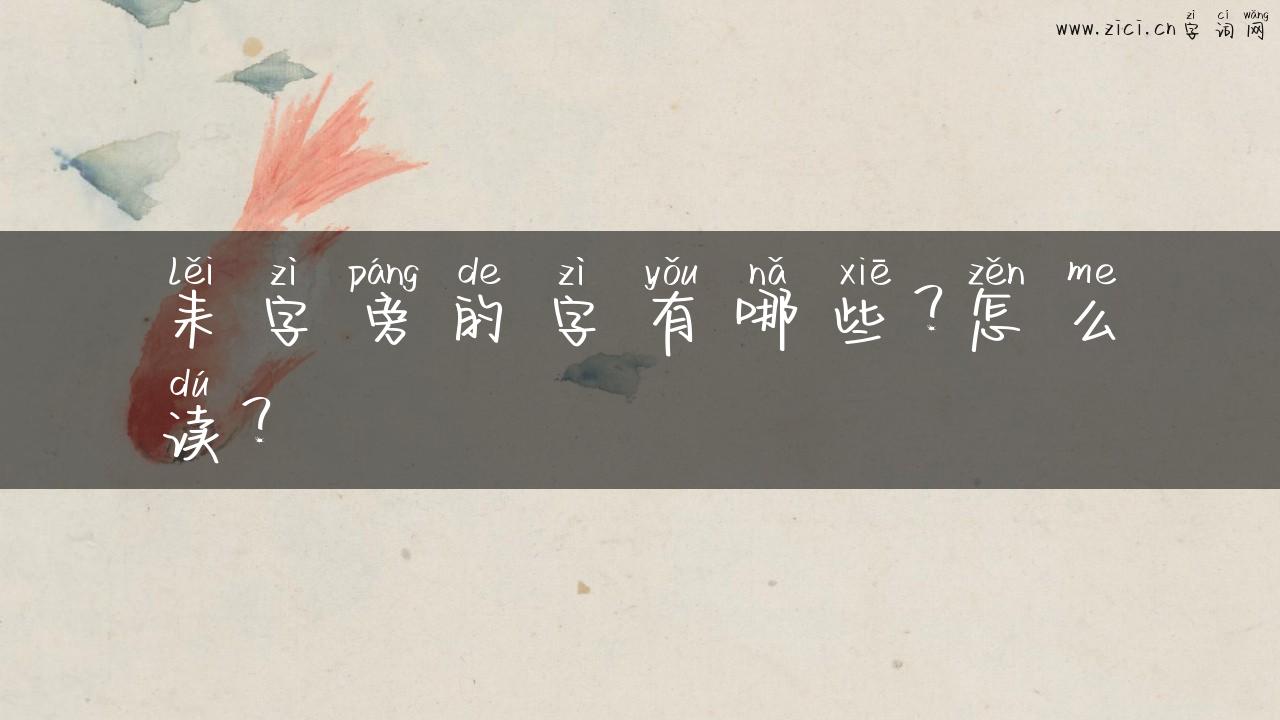 zì cí wǎng
www.zici.cn字词网
lěi zì páng de zì yǒu nǎ xiē zěn me
耒字旁的字有哪些?怎么
dú
读?